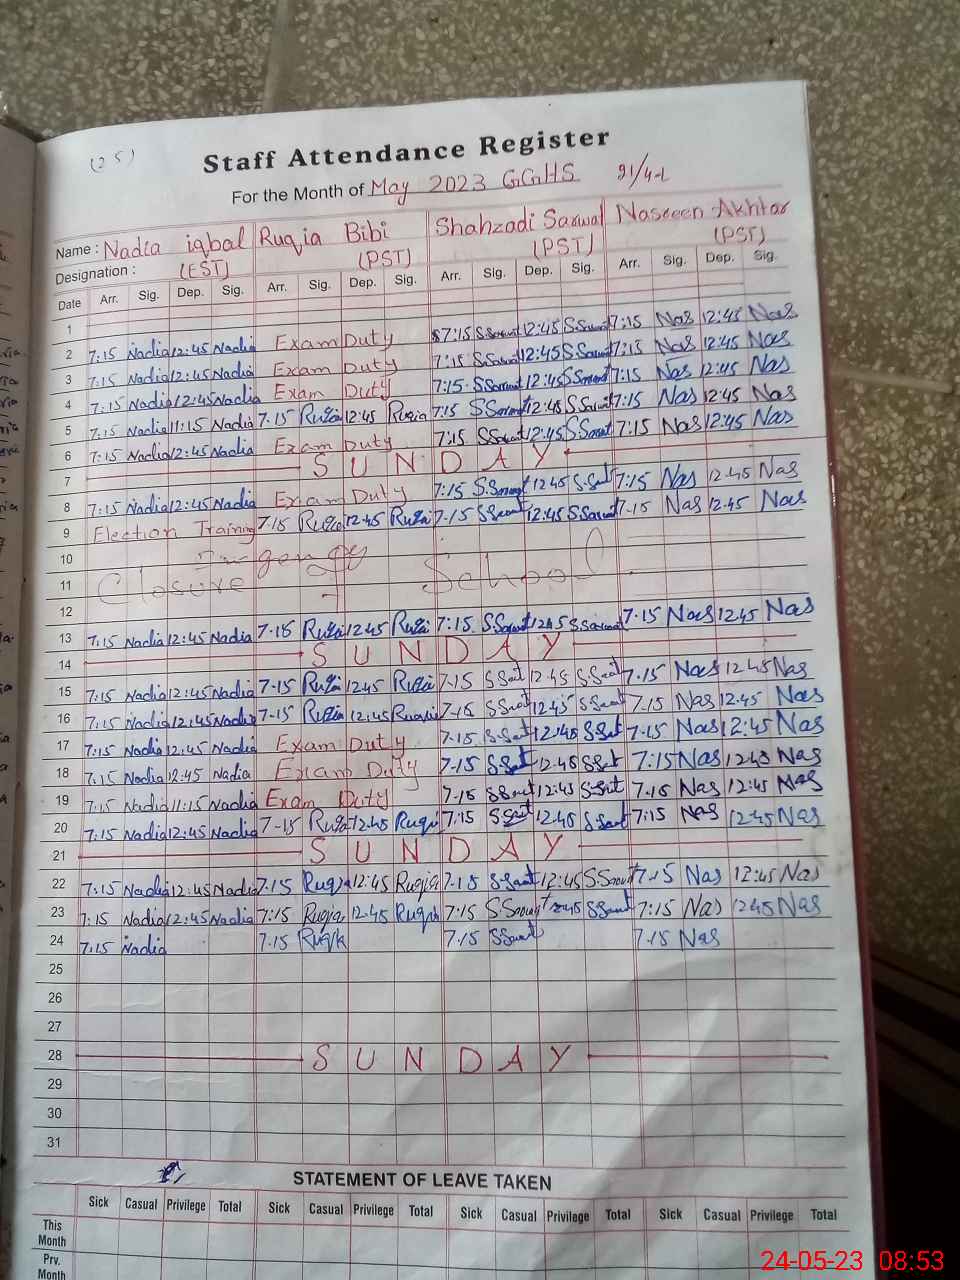 (25)
Staff Attendance Register
For the Month of May 2023 GGHS 91/4-L
Name : Nadia iqbal Ruqia Bibi Shahzadi Sarwat Nasreen Akhtar
Designation : (EST) (PST) (PST) (PST)
Date Arr. Sig. Dep. Sig. Arr. Sig. Dep. Sig. Arr. Sig. Dep. Sig. Arr. Sig. Dep. Sig.
1
2 7:15 Nadia 12:45 Nadia Exam Duty 7:15 S.Sarwat 12:45 S.Sarwat 7:15 Nas 12:45 Nas
3 7:15 Nadia 12:45 Nadia Exam Duty 7:15 S.Sarwat 12:45 S.Sarwat 7:15 Nas 12:45 Nas
4 7:15 Nadia 12:45 Nadia Exam Duty 7:15 S.Sarwat 12:45 S.Sarwat 7:15 Nas 12:45 Nas
5 7:15 Nadia 11:15 Nadia 7:15 Ruqia 12:45 Ruqia 7:15 S.Sarwat 12:45 S.Sarwat 7:15 Nas 12:45 Nas
6 7:15 Nadia 12:45 Nadia Exam Duty 7:15 S.Sarwat 12:45 S.Sarwat 7:15 Nas 12:45 Nas
7 SUNDAY
8 7:15 Nadia 12:45 Nadia Exam Duty 7:15 S.Sarwat 12:45 S.Sat 7:15 Nas 12:45 Nas
9 Election Training 7-15 Ruqia 12:45 Ruqia 7-15 S.Sarwat 12:45 S.Sarwat 7-15 Nas 12:45 Nas
10
11 Closure School
12
13 7:15 Nadia 12:45 Nadia 7-15 Ruqia 12:45 Ruqia 7:15 S.Sarwat 12:45 S.Sarwat 7-15 Nas 12:45 Nas
14 SUNDAY
15 7:15 Nadia 12:45 Nadia 7-15 Ruqia 12:45 Ruqia 7-15 S.Sat 12:45 S.Sat 7-15 Nas 12:45 Nas
16 7:15 Nadia 12:45 Nadia 7-15 Ruqia 12:45 Ruqia 7-15 S.Sat 12:45 S.Sat 7:15 Nas 12:45 Nas
17 7:15 Nadia 12:45 Nadia Exam Duty 7-15 S.Sat 12:45 S.Sat 7-15 Nas 12:45 Nas
18 7:15 Nadia 12:45 Nadia Exam Duty 7-15 S.Sat 12:45 S.Sat 7:15 Nas 12:45 Nas
19 7:15 Nadia 11:15 Nadia Exam Duty 7-15 S.Sat 12:45 S.Sat 7:15 Nas 12:45 Nas
20 7:15 Nadia 12:45 Nadia 7-15 Ruqia 12:45 Ruqia 7:15 S.Sat 12:45 S.Sat 7:15 Nas 12:45 Nas
21 SUNDAY
22 7:15 Nadia 12:45 Nadia 7:15 Ruqia 12:45 Ruqia 7-15 S.Sat 12:45 S.Sarwat 7:15 Nas 12:45 Nas
23 7:15 Nadia 12:45 Nadia 7:15 Ruqia 12:45 Ruqia 7:15 S.Sarwat 12:45 S.Sat 7:15 Nas 12:45 Nas
24 7:15 Nadia 7:15 Ruqia 7-15 S.Sarwat 7:15 Nas
25
26
27
28 SUNDAY
29
30
31
STATEMENT OF LEAVE TAKEN
Sick Casual Privilege Total Sick Casual Privilege Total Sick Casual Privilege Total Sick Casual Privilege Total
This Month
Prv. Month
24-05-23 08:53